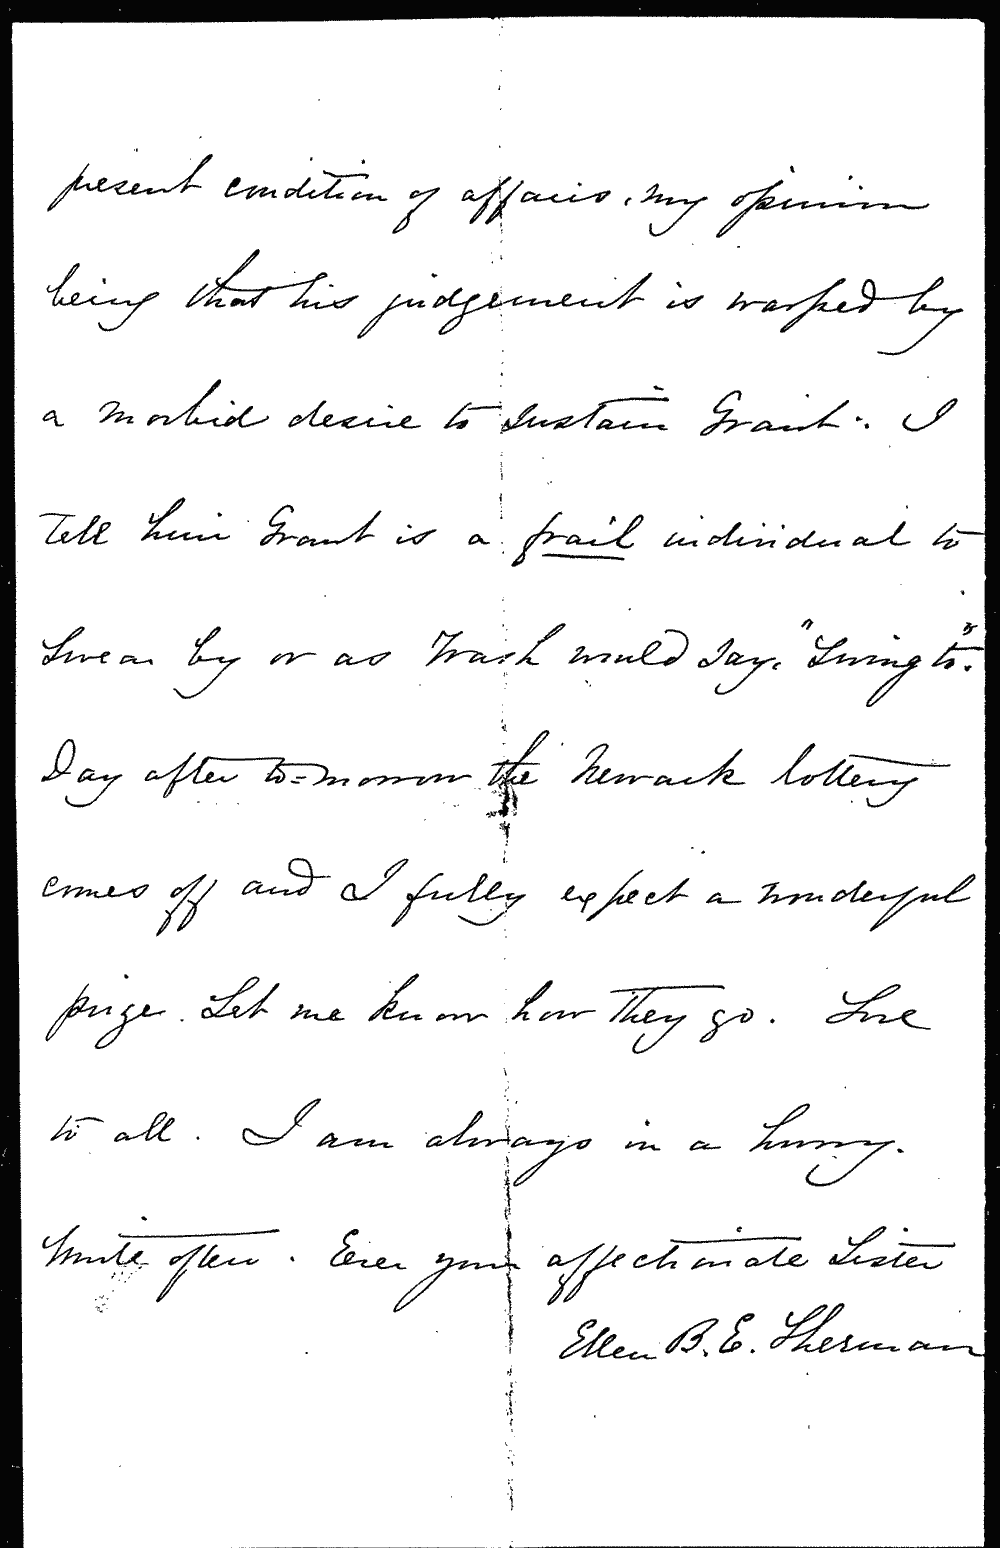 present condition of affairs, my opinion
being that his judgement is warped by
a morbid desire to sustain Grant. I
tell him Grant is a frail individual to
swear by or as would say. "Swing to".
Day after to-morrow the Newark lottery
comes off and I fully expect a wonderful
prize. Let me know how they go. Love
to all. I am always in a hurry.
Write often. Ever your affectionate Sister
Ellen B. E. Sherman